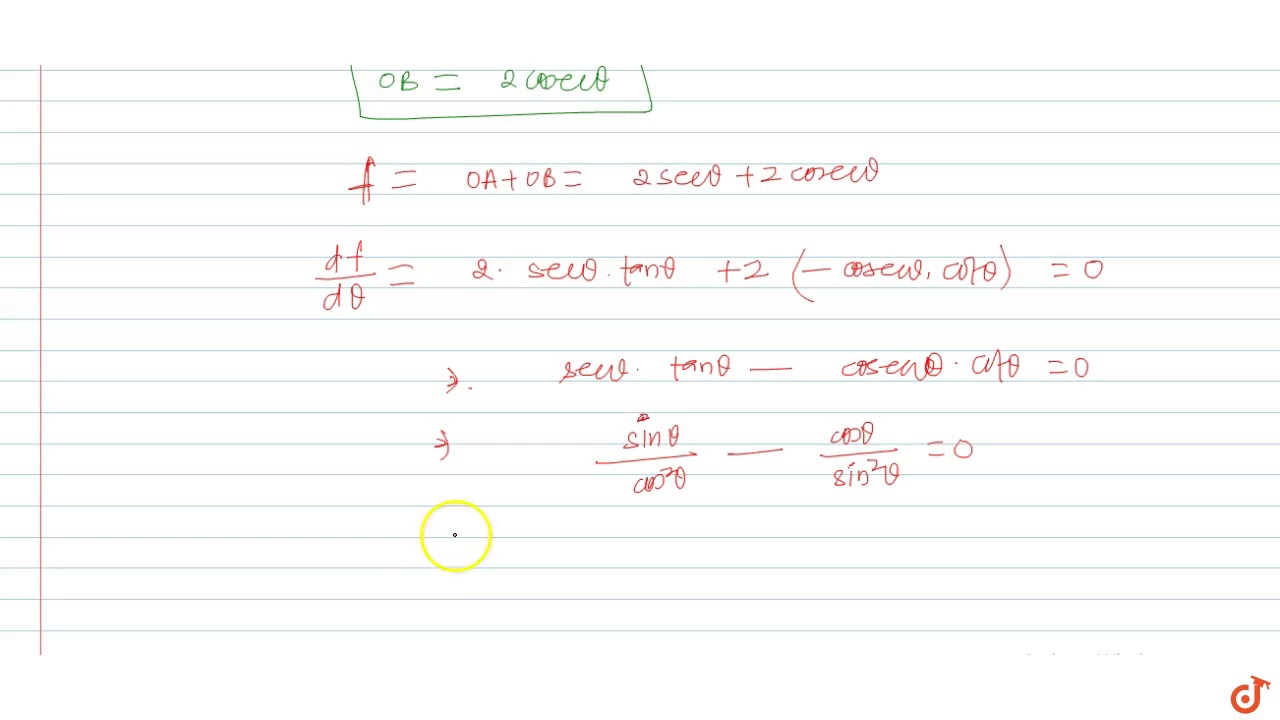 OB = 2 cosecθ
f = OA + OB = 2 secθ + 2 cosecθ
df/dθ = 2. secθ . tanθ + 2 (− cosecθ. cotθ) = 0
⇒. secθ. tanθ — cosecθ . cotθ = 0
⇒ sinθ/cos²θ — cosθ/sin²θ = 0